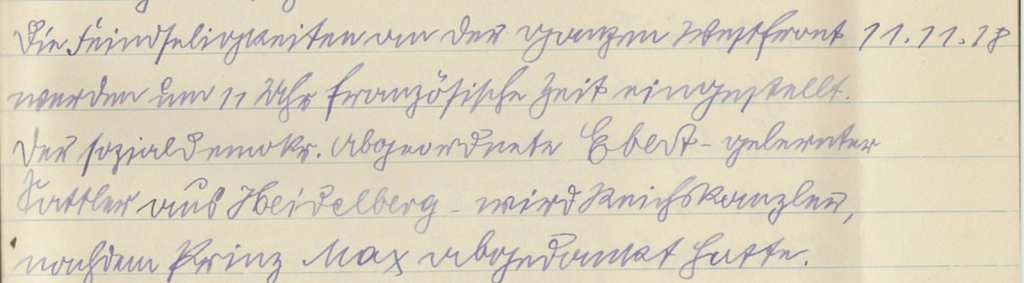 Die Feindseligkeiten an der ganzen Westfront 11.11.18
werden um 11 Uhr französische Zeit eingestellt.
Der sozialdemokr. Abgeordnete Ebert - gelernter
Sattler aus Heidelberg - wird Reichskanzler,
nachdem Prinz Max abgedankt hatte.